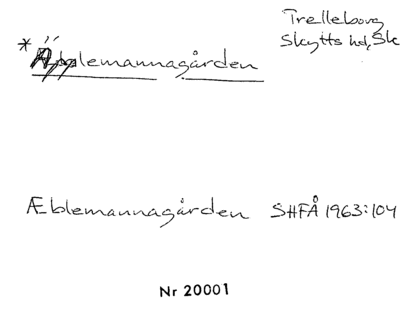 Trelleborg
Skytts hd, Sk
* Äpplemannagården
Æblemannagården SHFÅ 1963:104
Nr 20001